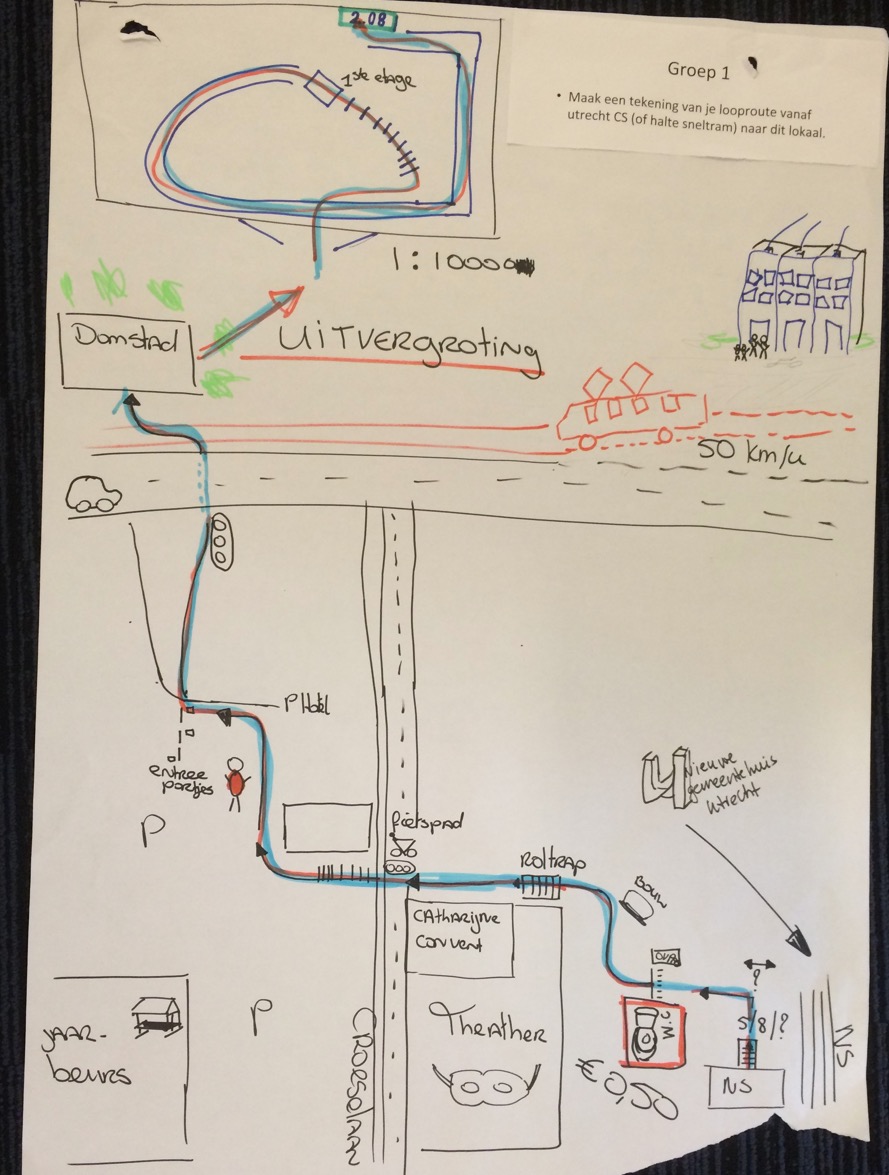 2.08
Groep 1
• Maak een tekening van je looproute vanaf
utrecht CS (of halte sneltram) naar dit lokaal.
1ste etage
1:10000
Domstad
UITVERGROTING
50 km/u
P Hotel
entree
poortjes
P
fietspad
Roltrap
BOUW
Nieuwe
gemeentehuis
Utrecht
CAtharijne
Convent
Theather
CROESELAAN
P
JAAR-
beurs
OVPP
?
5/8/?
W.C.
€0,50
NS
NS